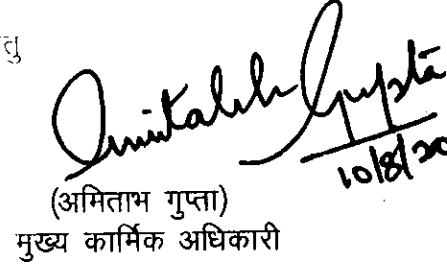 Amitabh Gupta
10/8/20
(अमिताभ गुप्ता)
मुख्य कार्मिक अधिकारी